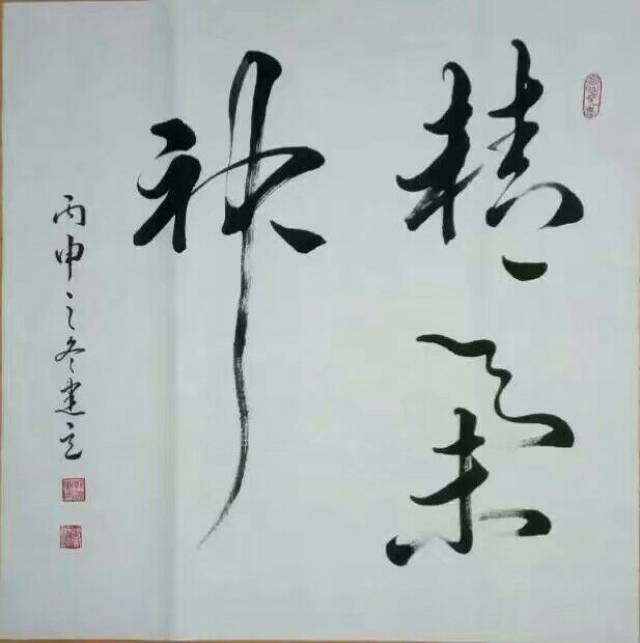 精氣
神
丙申之冬建立